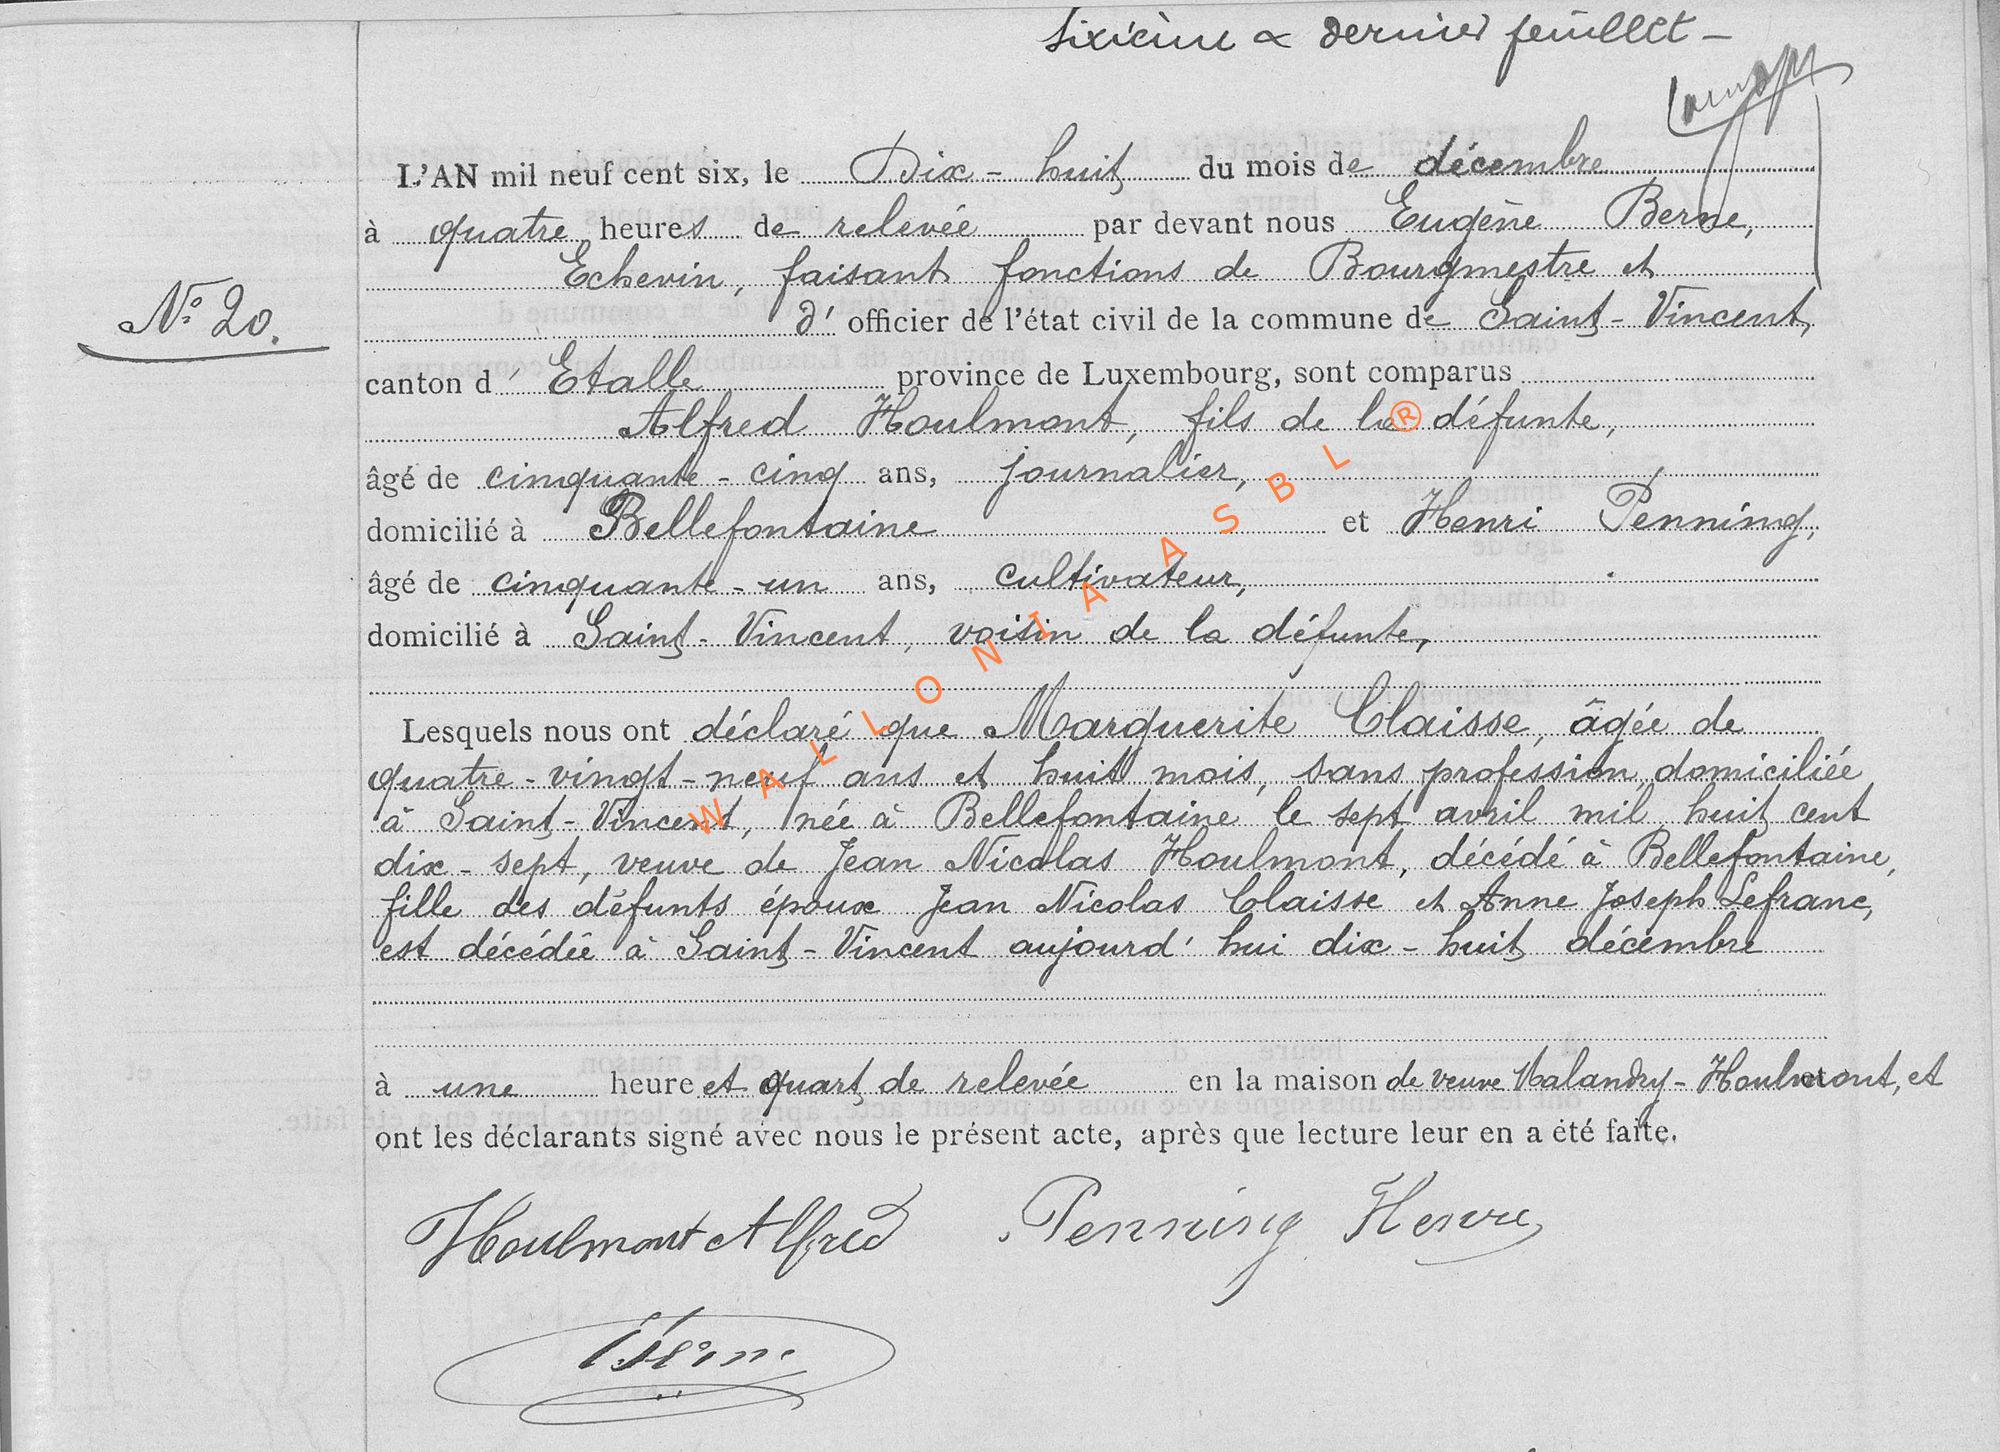 sixième & dernier feuillet -
L'AN mil neuf cent six, le Dix-huit du mois de décembre
à quatre heures de relevée par devant nous Eugène Berne,
Echevin, faisant fonctions de Bourgmestre et
N° 20.
d' officier de l'état civil de la commune de Saint-Vincent,
canton d' Etalle province de Luxembourg, sont comparus
Alfred Houlmont, fils de la défunte,
âgé de cinquante-cinq ans, journalier,
domicilié à Bellefontaine et Henri Penning,
âgé de cinquante-un ans, cultivateur,
domicilié à Saint-Vincent, voisin de la défunte,
Lesquels nous ont déclaré que Marguerite Claisse, âgée de
quatre-vingt-neuf ans et huit mois, sans profession, domiciliée
à Saint-Vincent, née à Bellefontaine le sept avril mil huit cent
dix-sept, veuve de Jean Nicolas Houlmont, décédé à Bellefontaine,
fille des défunts époux Jean Nicolas Claisse et Anne Joseph Lefranc,
est décédée à Saint-Vincent aujourd'hui dix-huit décembre
à une heure et quart de relevée en la maison de veuve Malandry-Houlmont, et
ont les déclarants signé avec nous le présent acte, après que lecture leur en a été faite.
Houlmont Alfred Penning Henri
Berne
WALLONIA ASBL ®